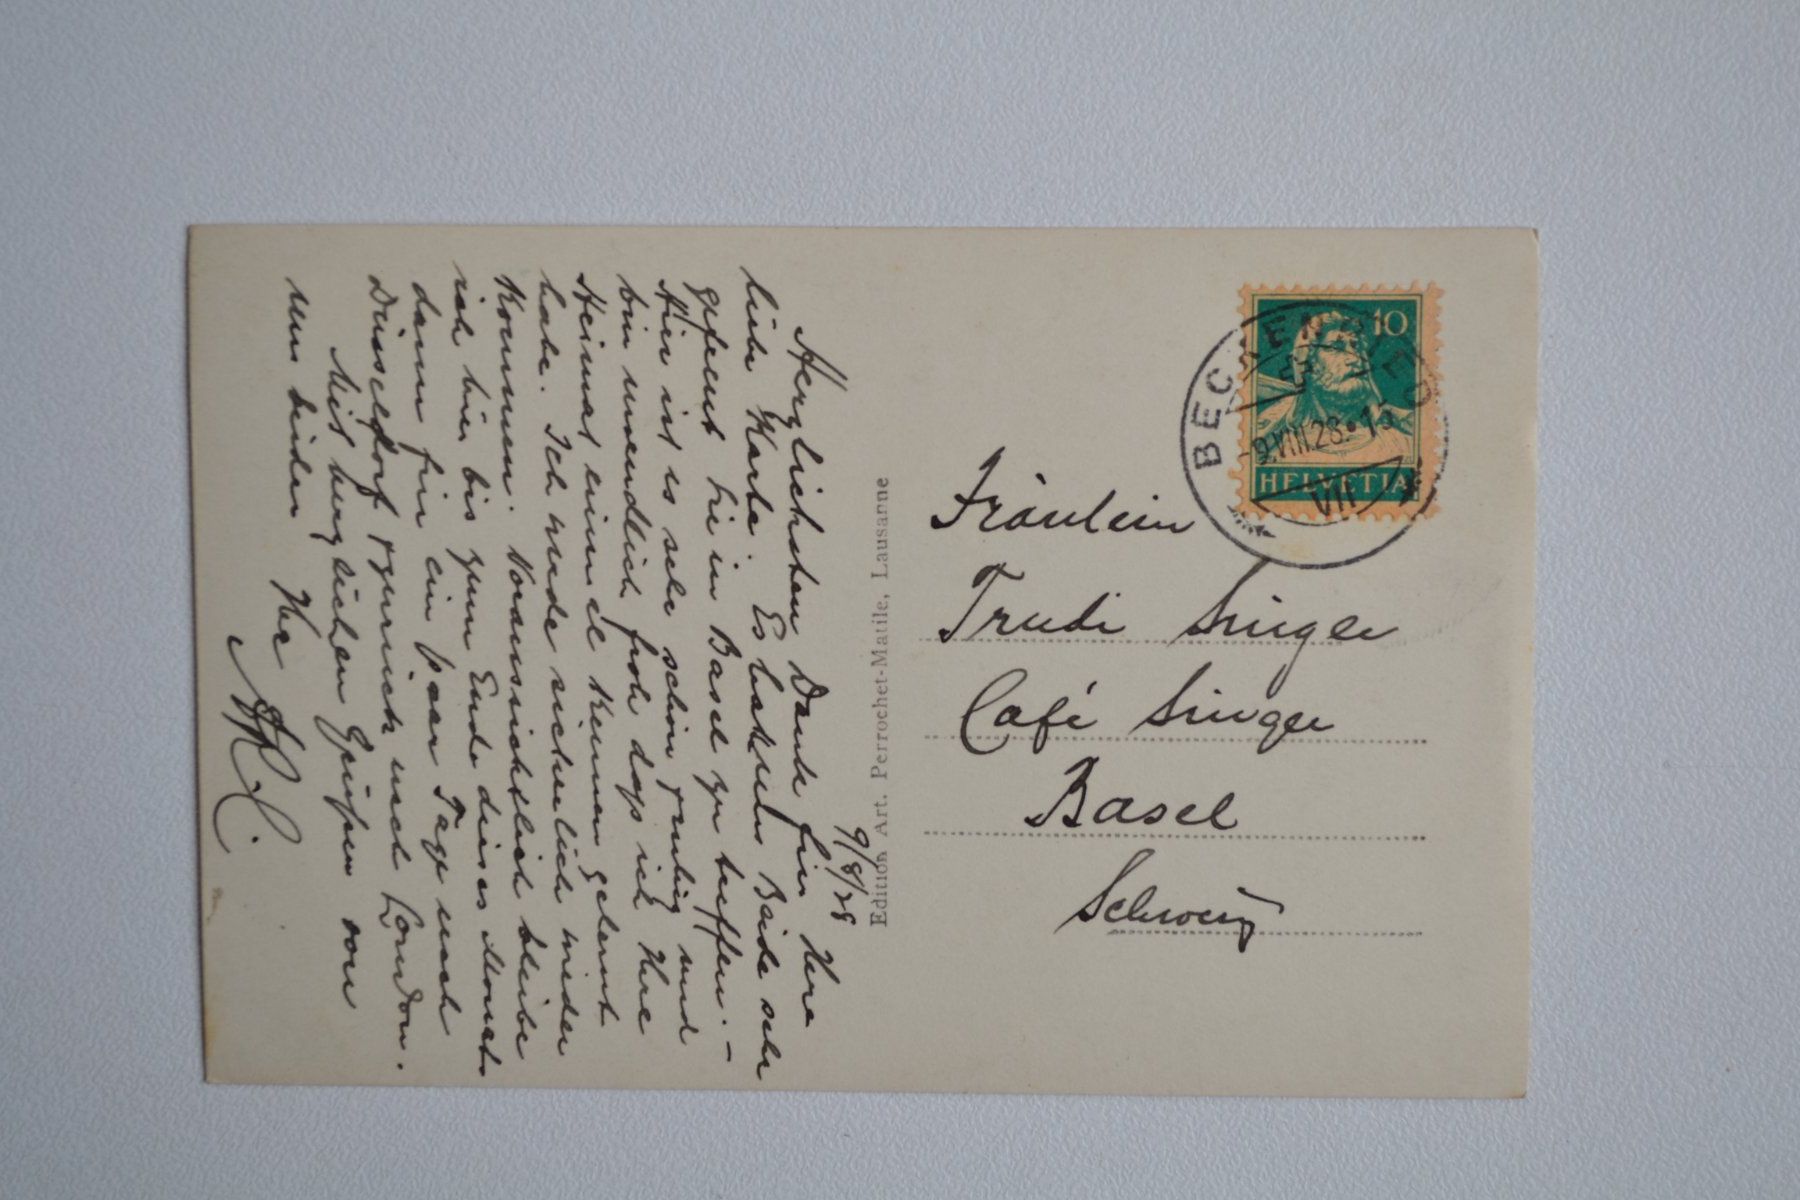 9/8/28
Herzlichsten Dank für Ihre
liebe Karte. Es hat uns Beide sehr
gefreut Sie in Basel zu treffen. –
Hier ist es sehr schön ruhig und
bin unendlich froh dass ich Ihre
Heimat einmal kennen gelernt
habe. Ich werde sicherlich wieder
kommen. Voraussichtlich bleibe
ich hier bis zum Ende dieses Monats
dann für ein paar Tage nach
Düsseldorf zurück nach London.
Mit herzlichen Grüssen von
uns beiden Ihr
Edition Art. Perrochet-Matile, Lausanne
Fräulein
Trudi Singer
Café Singer
Basel
Schweiz
10
HELVETIA
BECKENRIED
-9.VIII.28.•15
VII